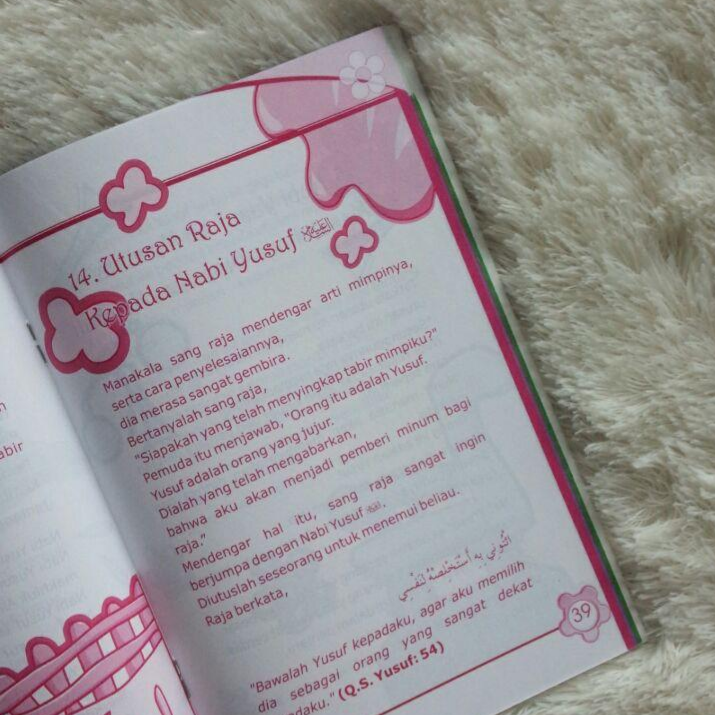 14. Utusan Raja
Kepada Nabi Yusuf
Manakala sang raja mendengar arti mimpinya,
serta cara penyelesaiannya,
dia merasa sangat gembira.
Bertanyalah sang raja,
"Siapakah yang telah menyingkap tabir mimpiku?"
Pemuda itu menjawab, "Orang itu adalah Yusuf.
Yusuf adalah orang yang jujur.
Dialah yang telah mengabarkan,
bahwa aku akan menjadi pemberi minum bagi
raja."
Mendengar hal itu, sang raja sangat ingin
berjumpa dengan Nabi Yusuf
Diutuslah seseorang untuk menemui beliau.
Raja berkata,
ائْتُونِي بِهِ أَسْتَخْلِصْهُ لِنَفْسِي
"Bawalah Yusuf kepadaku, agar aku memilih
dia sebagai orang yang sangat dekat
daku." (Q.S. Yusuf: 54)
39
abir